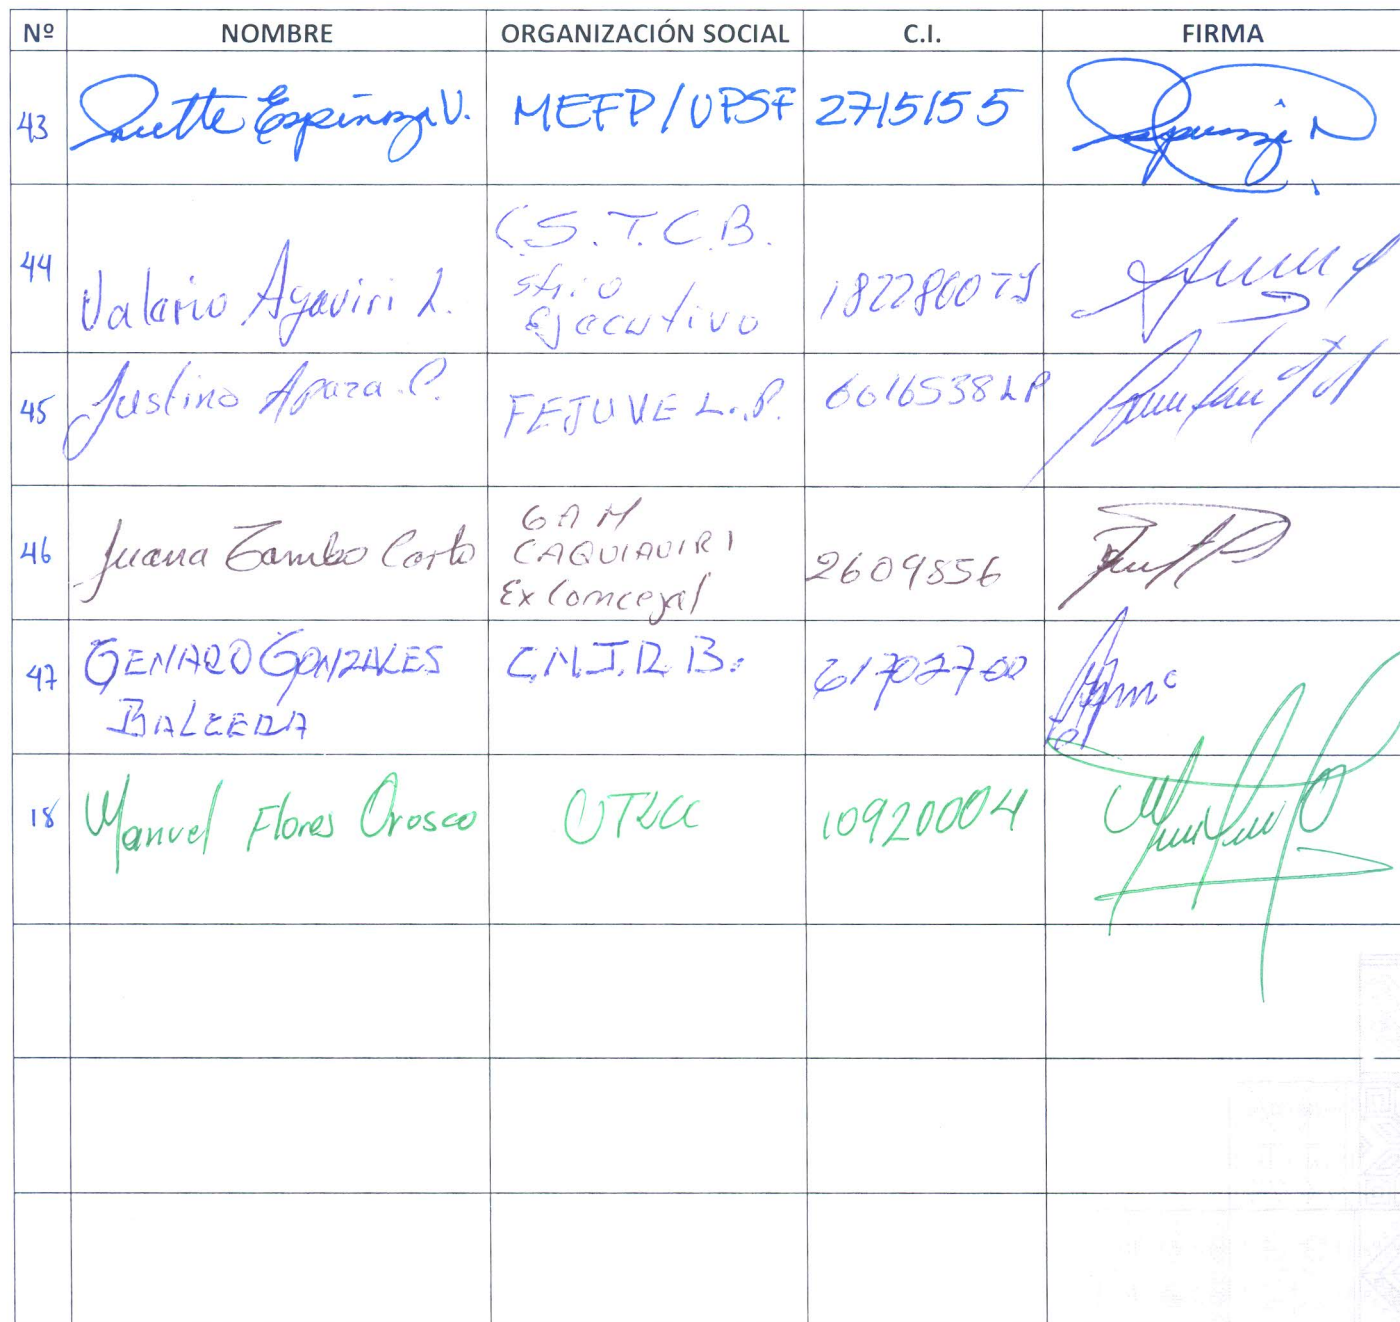 Nº NOMBRE ORGANIZACIÓN SOCIAL C.I. FIRMA
43 Ivette Espinoza V. MEFP/UPSF 2715155
44 Valerio Ayaviri L. C.S.T.C.B. strio Ejecutivo 1822800 TJ
45 Justino Apaza C. FEJUVE L.P. 6016538 LP
46 Juana Tambo Corto GAM CAQUIAVIRI Ex Concejal 2609856
47 GENARO GONZALES BALCERA C.N.J.R.B. 61702700
18 Manuel Flores Orosco 10920004